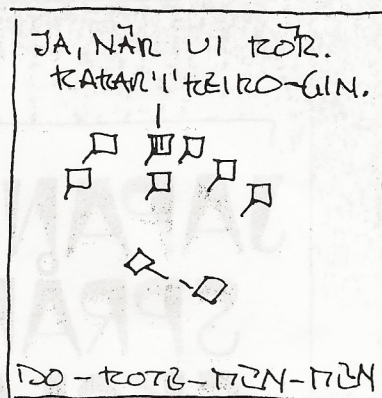 JA, NÄR VI KÖR.
KAKAR'I'KEIKO-GIN.
DO-KOTE-MEN-MEN